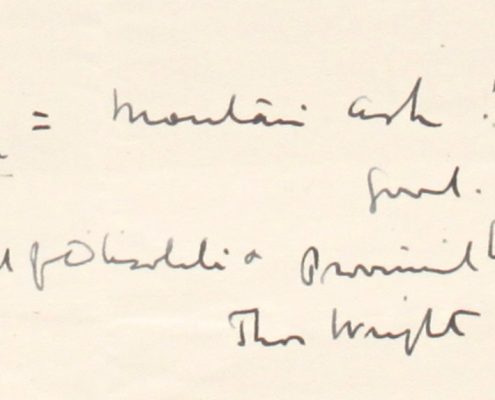 = Mountain Ash
of Obsolete & Provincial
Thos Wright